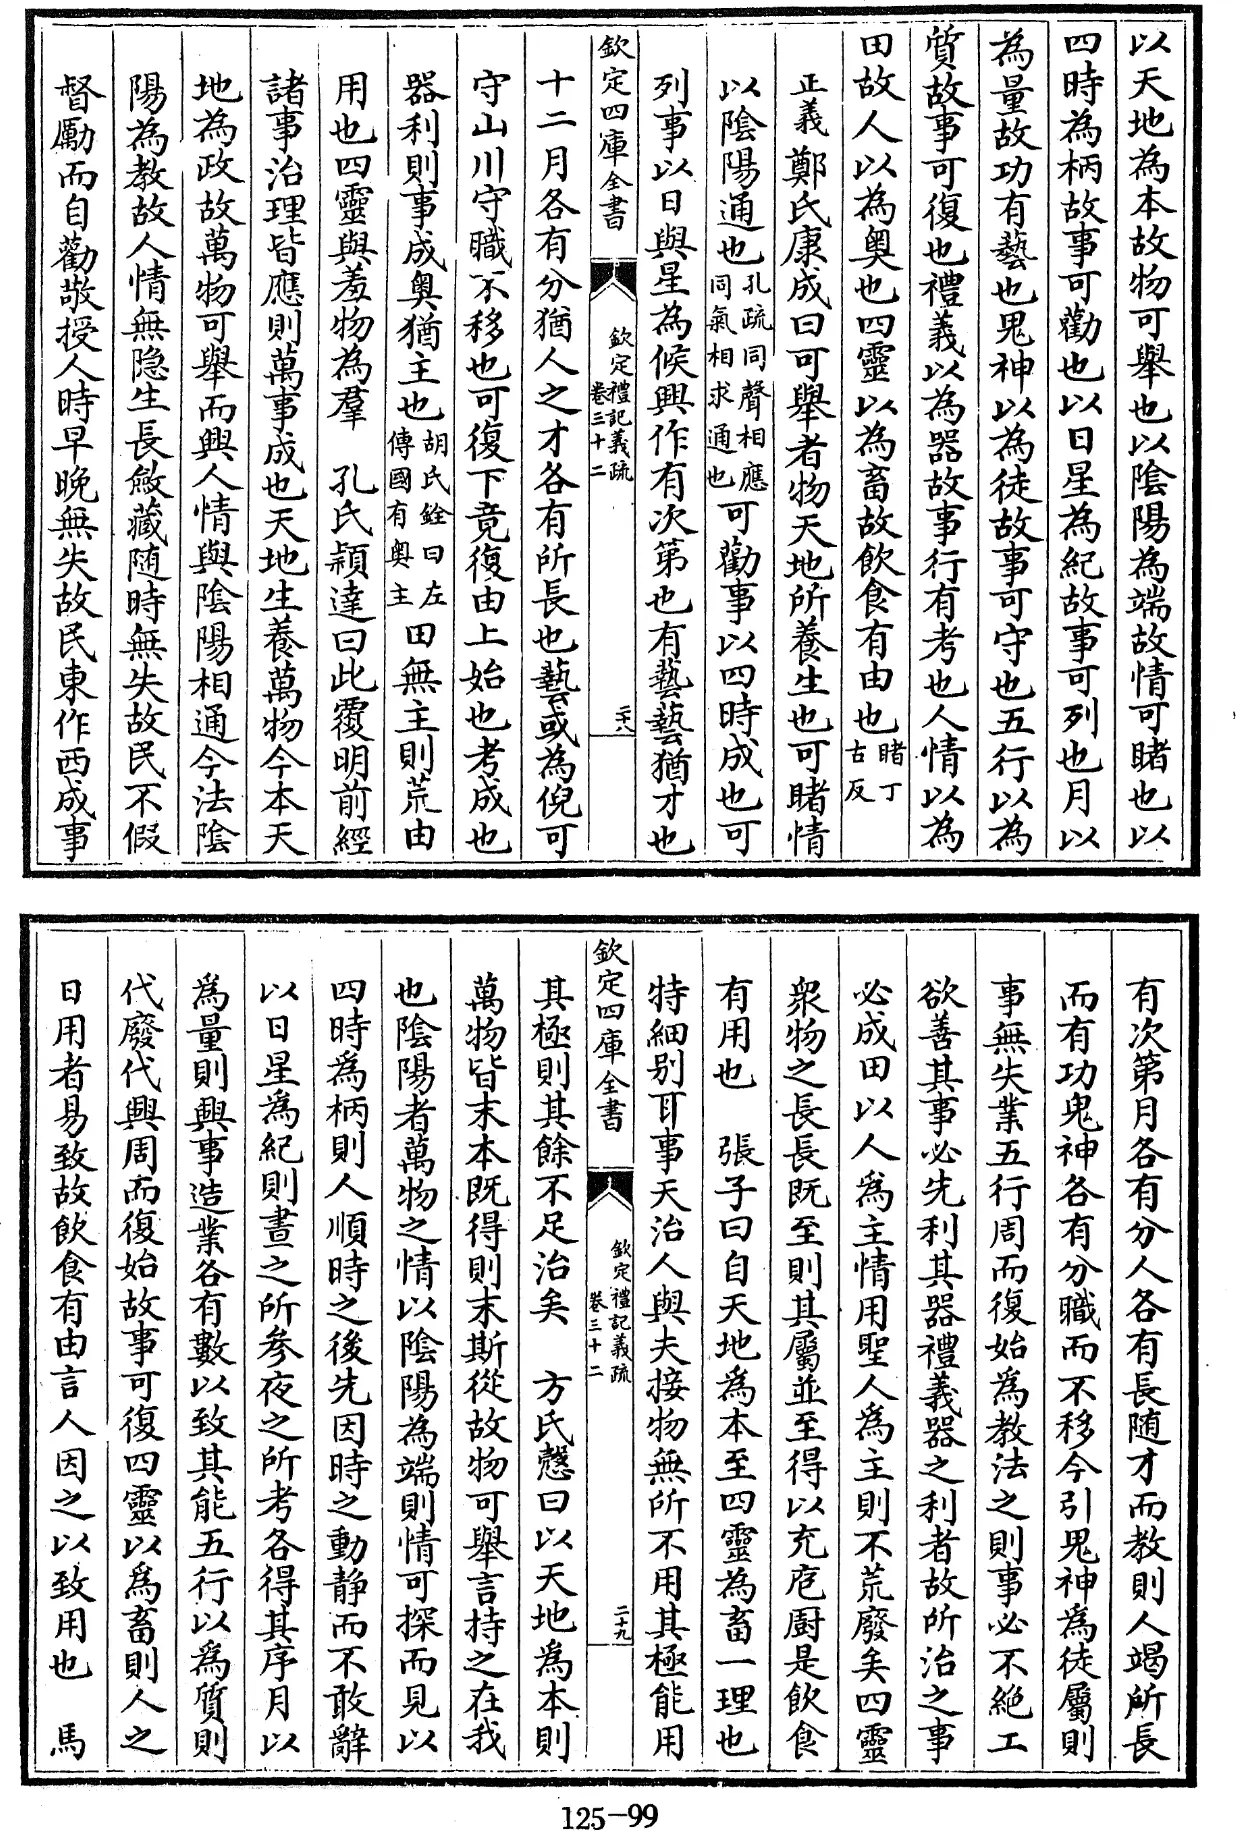 以天地為本故物可舉也以陰陽為端故情可睹也以
四時為柄故事可勸也以日星為紀故事可列也月以
為量故功有藝也鬼神以為徒故事可守也五行以為
質故事可復也禮義以為器故事行有考也人情以為
田故人以為奥也四靈以為畜故飲食有由也睹丁
古反
正義 鄭氏康成曰可舉者物天地所養生也可睹情
以陰陽通也孔疏同聲相應
同氣相求通也可勸事以四時成也可
列事以日與星為候興作有次第也有藝藝猶才也
欽定四庫全書 欽定禮記義疏
卷三十二 二十八
十二月各有分猶人之才各有所長也藝或為倪可
守山川守職不移也可復下竟復由上始也考成也
器利則事成奥猶主也胡氏銓曰左
傳國有奥主田無主則荒由
用也四靈與羞物為羣 孔氏穎達曰此覆明前經
諸事治理皆應則萬事成也天地生養萬物今本天
地為政故萬物可舉而興人情與陰陽相通今法陰
陽為教故人情無隱生長斂藏隨時無失故民不假
督勵而自勸敬授人時早晚無失故民東作西成事
有次第月各有分人各有長随才而教則人竭所長
而有功鬼神各有分職而不移今引鬼神為徒屬則
事無失業五行周而復始為教法之則事必不絶工
欲善其事必先利其器禮義器之利者故所治之事
必成田以人為主情用聖人為主則不荒廢矣四靈
衆物之長長既至則其屬並至得以充庖廚是飲食
有用也 張子曰自天地為本至四靈為畜一理也
特細别耳事天治人與夫接物無所不用其極能用
欽定四庫全書 欽定禮記義疏
卷三十二 二十九
其極則其餘不足治矣 方氏慤曰以天地為本則
萬物皆末本既得則末斯從故物可舉言持之在我
也陰陽者萬物之情以陰陽為端則情可探而見以
四時為柄則人順時之後先因時之動静而不敢辭
以日星為紀則晝之所參夜之所考各得其序月以
為量則興事造業各有數以致其能五行以為質則
代廢代興周而復始故事可復四靈以為畜則人之
日用者易致故飲食有由言人因之以致用也 馬
125-99